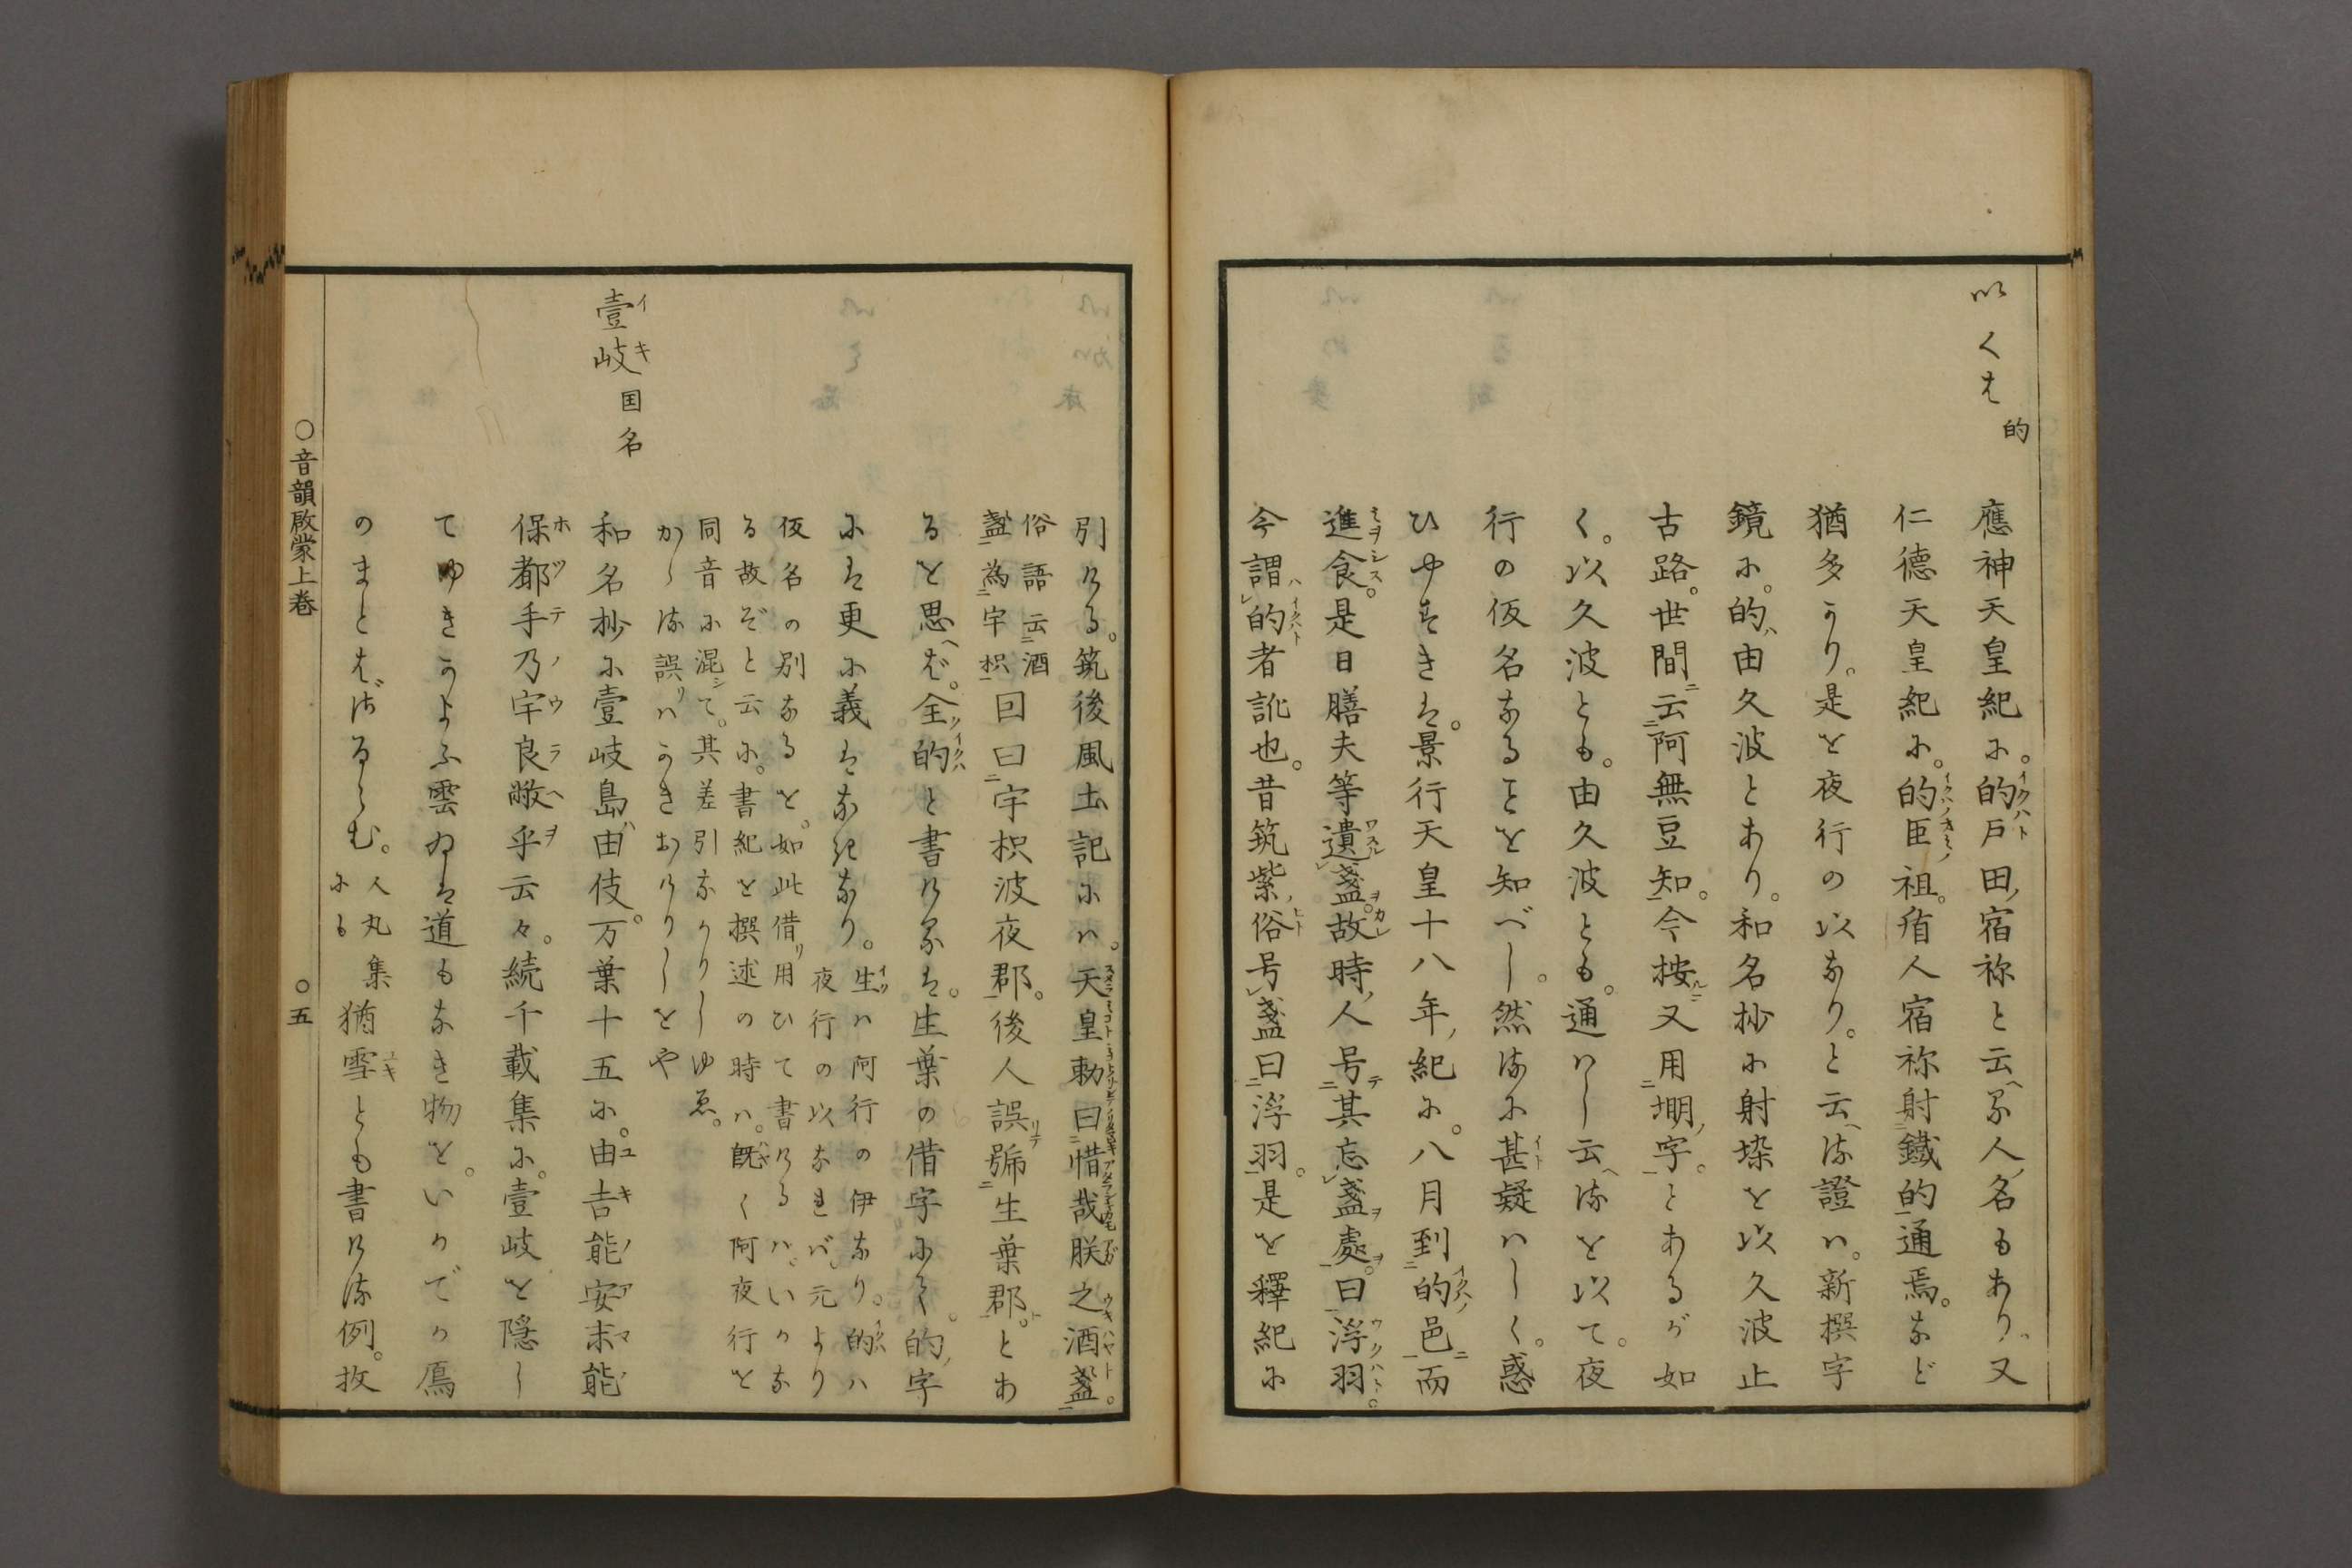 以くは 的
應神天皇紀に。的戸田宿祢と云る人名もあり。又
仁德天皇紀に。的臣祖。盾人宿祢射鐵的通焉。など
猶多かり。是を夜行の以なり。と云る證ハ。新撰字
鏡に。的由久波とあり。和名抄に射垜を以久波止
古路。世間云阿無豆知。今按又用堋字。とあるが如
く。以久波とも。由久波とも。通ハし云るを以て。夜
行の仮名なることを知べし。然るに甚疑ハしく。惑
ひやすきは。景行天皇十八年紀に。八月到的邑而
進食。是日膳夫等遺盞。故時人号其忘盞處曰浮羽。
今謂的者訛也。昔筑紫俗号盞曰浮羽。是を釋紀に
引ける。筑後風土記にハ。天皇勅曰惜哉朕之酒盞。
俗語云酒
盞為宇枳
回曰宇枳波夜郡。後人誤號生葉郡。とあ
ると思へば。全的と書けるは。生葉の借字にて。的字
には更に義はなきなり。
生ハ阿行の伊なり。的ハ
夜行の以なれバ。元より
仮名の別なるを。如此借り用ひて書けるハ。いかな
る故ぞと云に。書紀を撰述の時ハ。既く阿夜行を
同音に混して。其差引なかりしゆゑ。
かゝる誤りハうきありけりしとや
壹岐 国名
和名抄に壹岐島由伎。万葉十五に。由吉能安末能
保都手乃宇良敝乎云々。続千載集に。壹岐を隠し
てゆきかよふ雲ゐは道もなき物を。いかでか鴈
のまとはざるらむ。
人丸集
にも
猶雪とも書ける例。枚
○音韻啟蒙上巻
○五